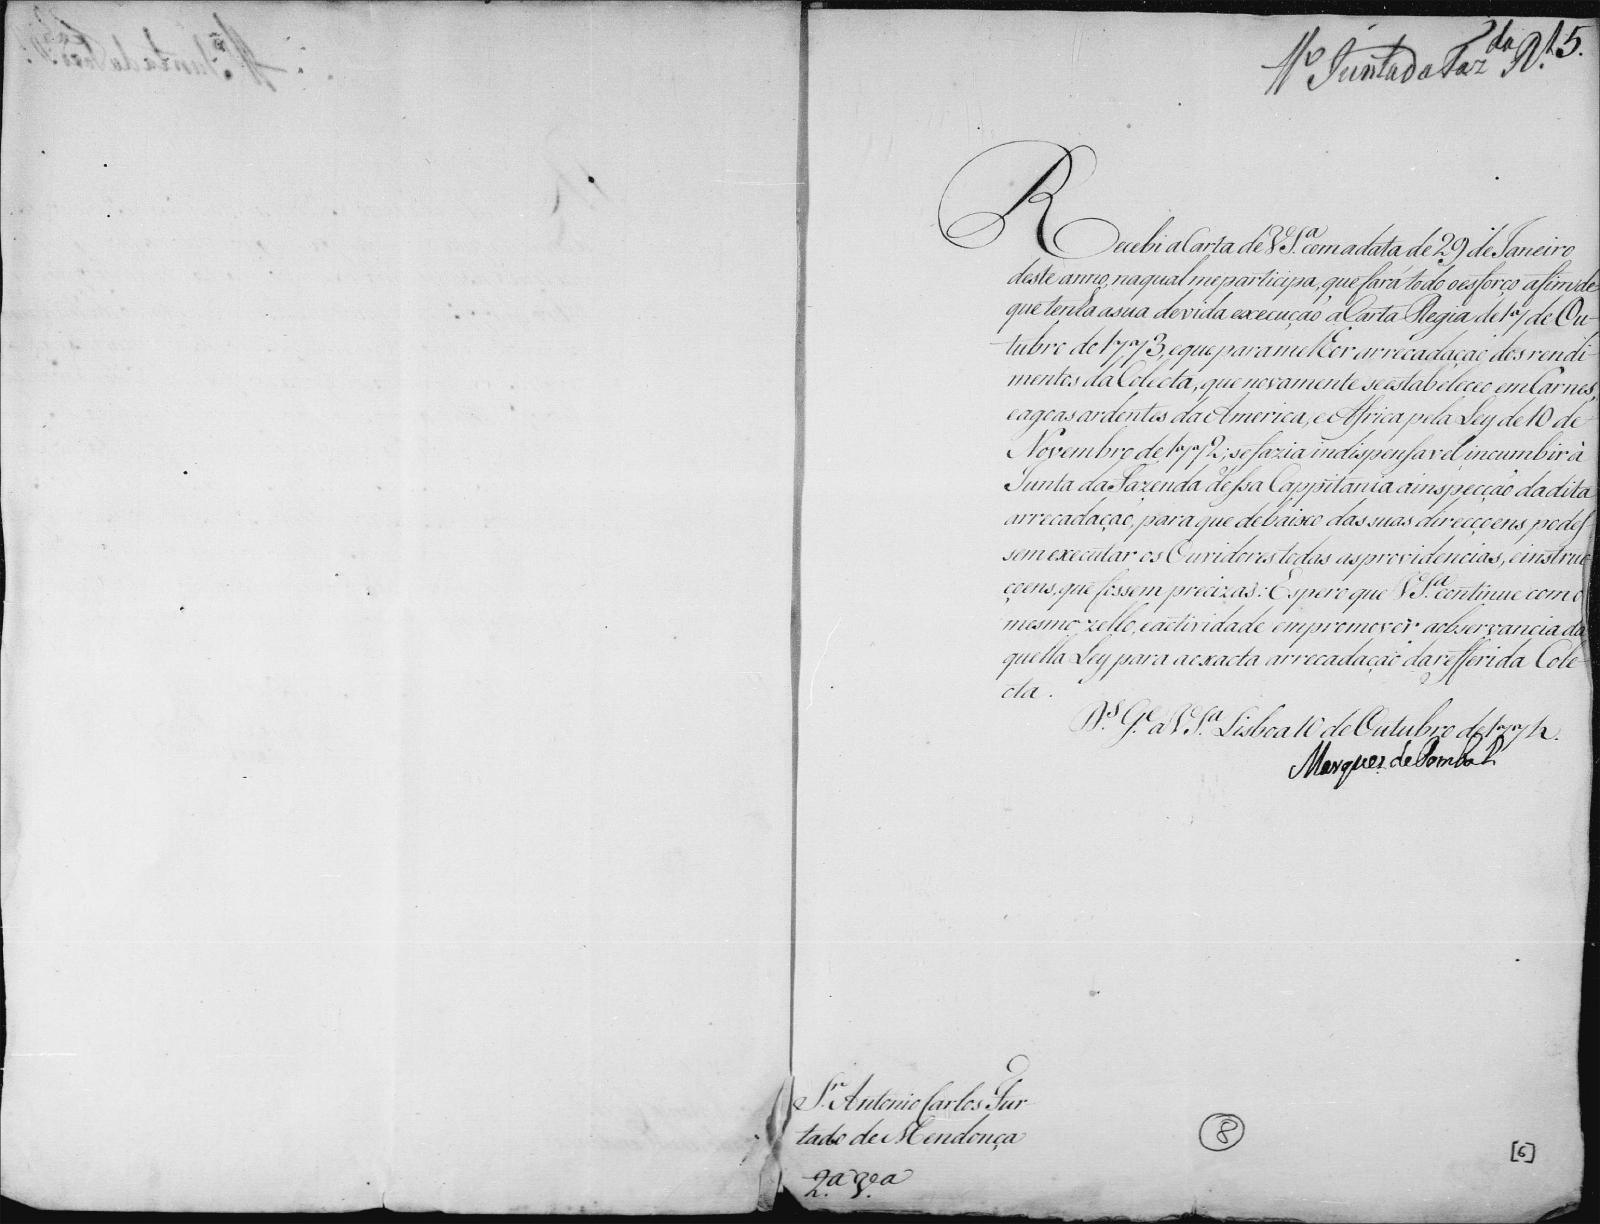 Mº Junta da Fazda R. 15.
Recebi a Carta de V Sª com a data de 29 de Janeiro
deste anno, na qual me participa, que fará todo o esforço afim de
que tenha a sua devida execução a Carta Regia de 17 de Ou-
tubro de 1773, e que para melhor arrecadação dos rendi-
mentos da Colecta, que novamente se estabeleceo em Carnes,
e agoas ardentes da America, e Africa pela Ley de 10 de
Novembro de 1772; se fazia indispensavel incumbir à
Junta da Fazenda dessa Cappitania a inspecção da dita
arrecadação, para que debaixo das suas direcçoens podes-
sem executar os Ouvidores todas as providencias, e instruc
çoens, que fossem precizas: Espero que V Sª continue com o
mesmo zello, e actividade em promover a observancia da
quella Ley para a exacta arrecadação da refferida Cole-
cta.
Ds. Ge. a V Sª Lisboa 10 de Outubro de 1774.
Marques de Pombal
Sr. Antonio Carlos Fur-
tado de Mendonça
2.ª vª
8
[6]